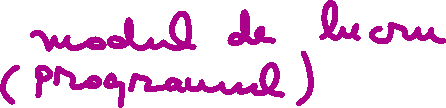 modul de lucru
(programul)